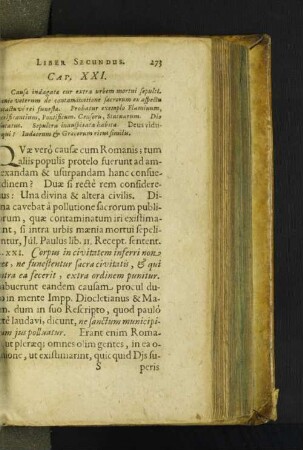 LIBER SECUNDUS. 273
CAP. XXI.
Causa indagata cur extra urbem mortui sepulti.
veterum de contaminatione sacrorum ex aspectu
tactuve rei funestæ. Probatur exemplo Flaminum,
Pontificum. Censoru, Statuarum. Dis
Sepultra inauspicata habita Deus vidit
qui? Iudæorum & Græcorum ritus similis.
QVæ verò causæ cum Romanis; tum
aliis populis protelo fuerunt ad am-
lexandam & usurpandam hanc consue-
udinem? Duæ si rectè rem considere-
us: Una divina & altera civilis. Di-
na cavebat à pollutione sacrorum publi-
orum, quæ contaminatum iri existima-
ant, si intra urbis mœnia mortui sepeli-
entur, Jul. Paulus lib. 11. Recept. sentent.
. XXI. Corpus in civitatem inferri non
et, ne funestentur sacra civitatis, & qui
ntra ea fecerit, extra ordinem punitur.
abuerunt eandem causam procul du-
o in mente Impp. Diocletianus & Ma-
n. dum in suo Rescripto, quod pauló
tè laudavi, dicunt, ne sanctum municipi-
um jus polluatur. Erant enim Roma-
ut pleræq; omnes olim gentes, in ea o-
nione, ut existimarint, quicquid Djs su-
S peris